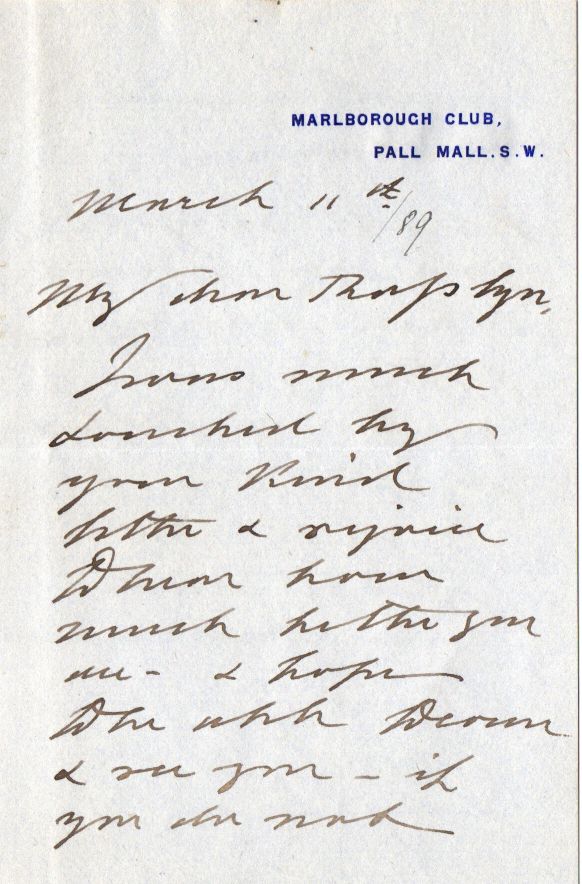 MARLBOROUGH CLUB,
PALL MALL. S. W.
March 11th /89
My dear
I was much
touched by
your kind
letter & rejoice
to hear how
much better you
are - & hope
to be able to come
& see you - if
you do not